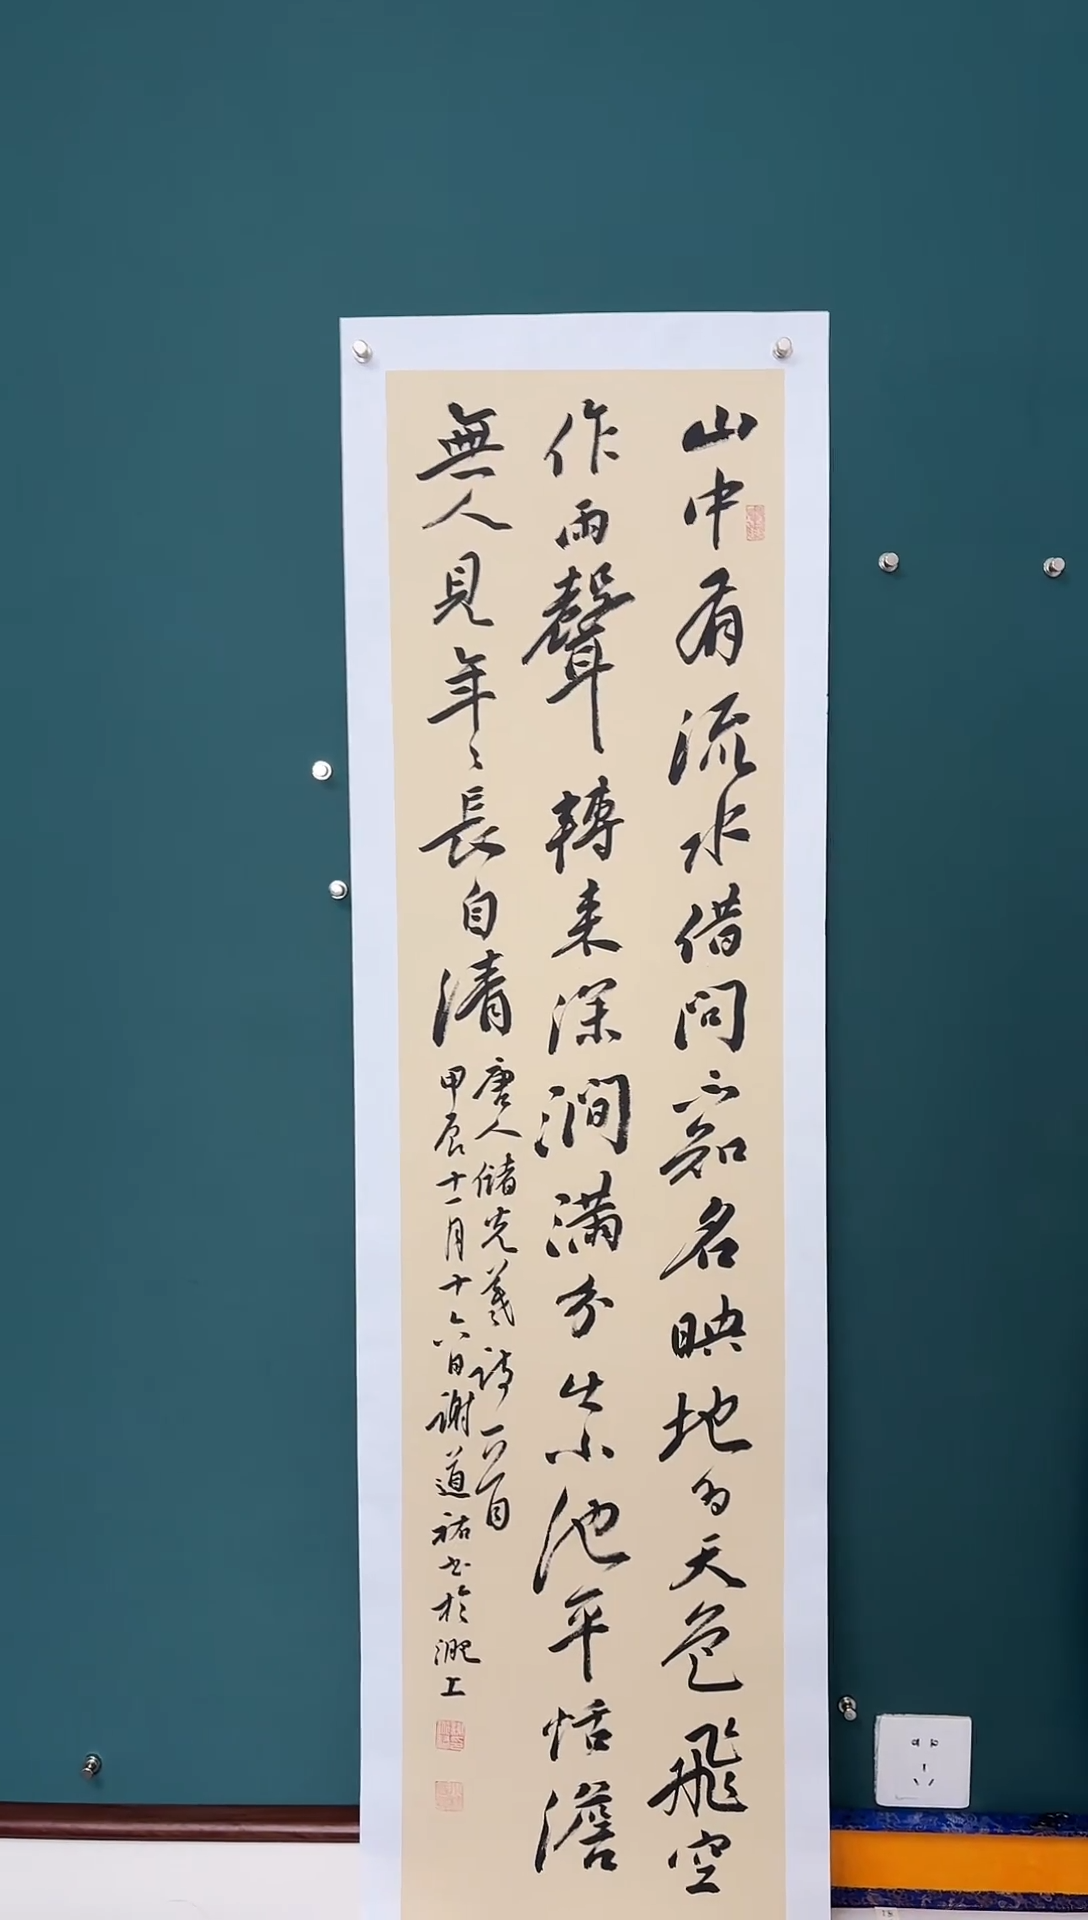 山中有流水借問不知名映地為天色飛空
作雨聲轉来深澗满分出小池平恬澹
無人見年〻長自清
唐人儲光羲詩一首
甲辰十一月十六日謝道祐书於淝上